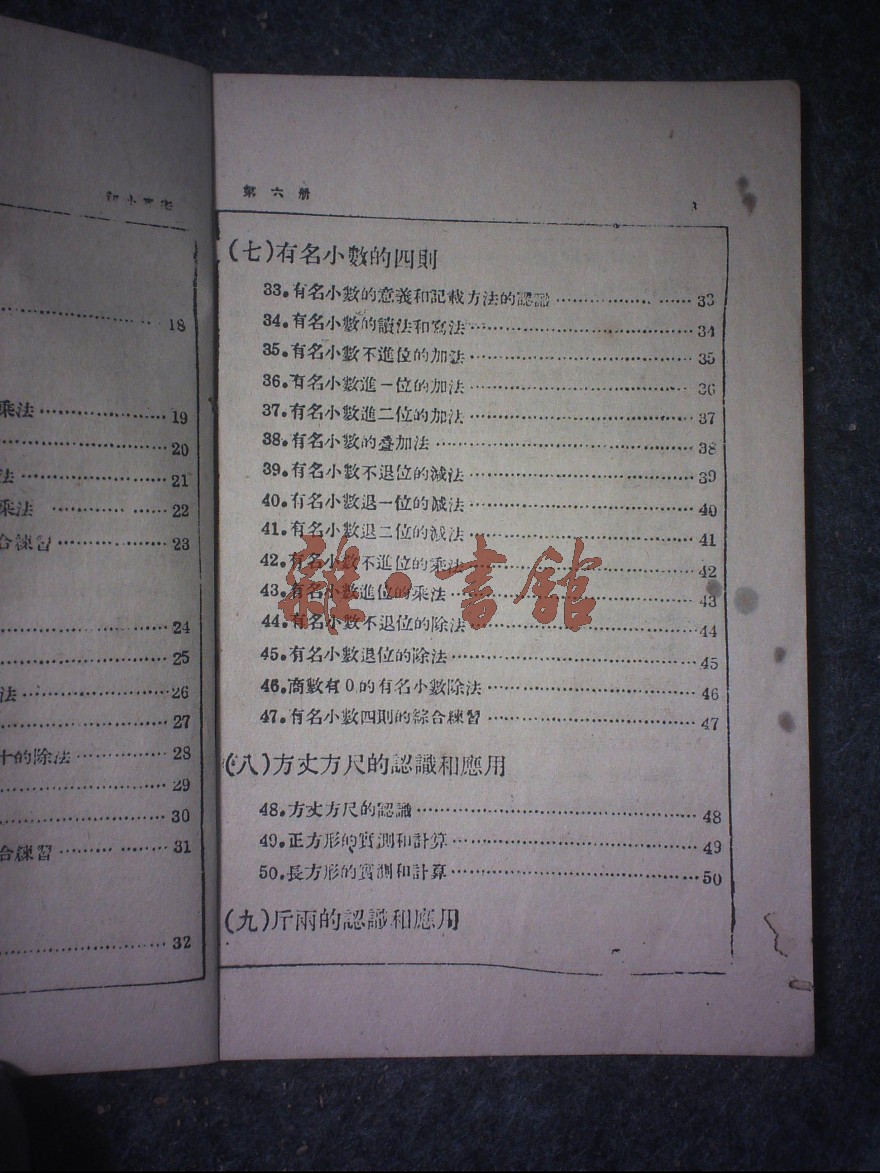 18
乘法 19
20
法 21
乘法 22
合練習 23
24
25
法 26
27
十的除法 28
29
30
合練習 31
32
第六册
3
(七)有名小數的四則
33.有名小數的意義和記載方法的認識 33
34.有名小數的讀法和寫法 34
35.有名小數不進位的加法 35
36.有名小數進一位的加法 36
37.有名小數進二位的加法 37
38.有名小數的叠加法 38
39.有名小數不退位的減法 39
40.有名小數退一位的減法 40
41.有名小數退二位的減法 41
42.有名小數不進位的乘法 42
43.有名小數進位的乘法 43
44.有名小數不退位的除法 44
45.有名小數退位的除法 45
46.商數有0的有名小數除法 46
47.有名小數四則的綜合練習 47
(八)方丈方尺的認識和應用
48.方丈方尺的認識 48
49.正方形的實測和計算 49
50.長方形的實測和計算 50
(九)斤兩的認識和應用
雜·書館